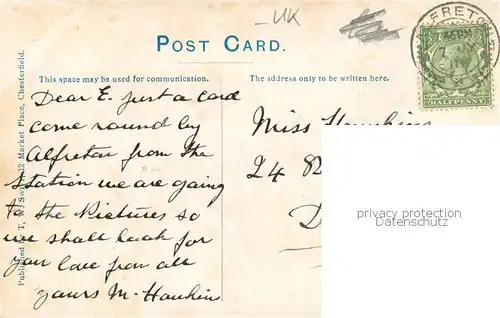 UK
ALFRETON
POST CARD.
HALFPENNY
This space may be used for communication.
The address only to be written here.
Dear E. Just a card
come round by
Alfreton from the
Station we are going
to the Pictures so
we shall look for
you love from all
yours M. Hawkin
Miss Hawkins
24 82
D
privacy protection
Datenschutz
Published by T. W. Swift, 12 Market Place, Chesterfield.